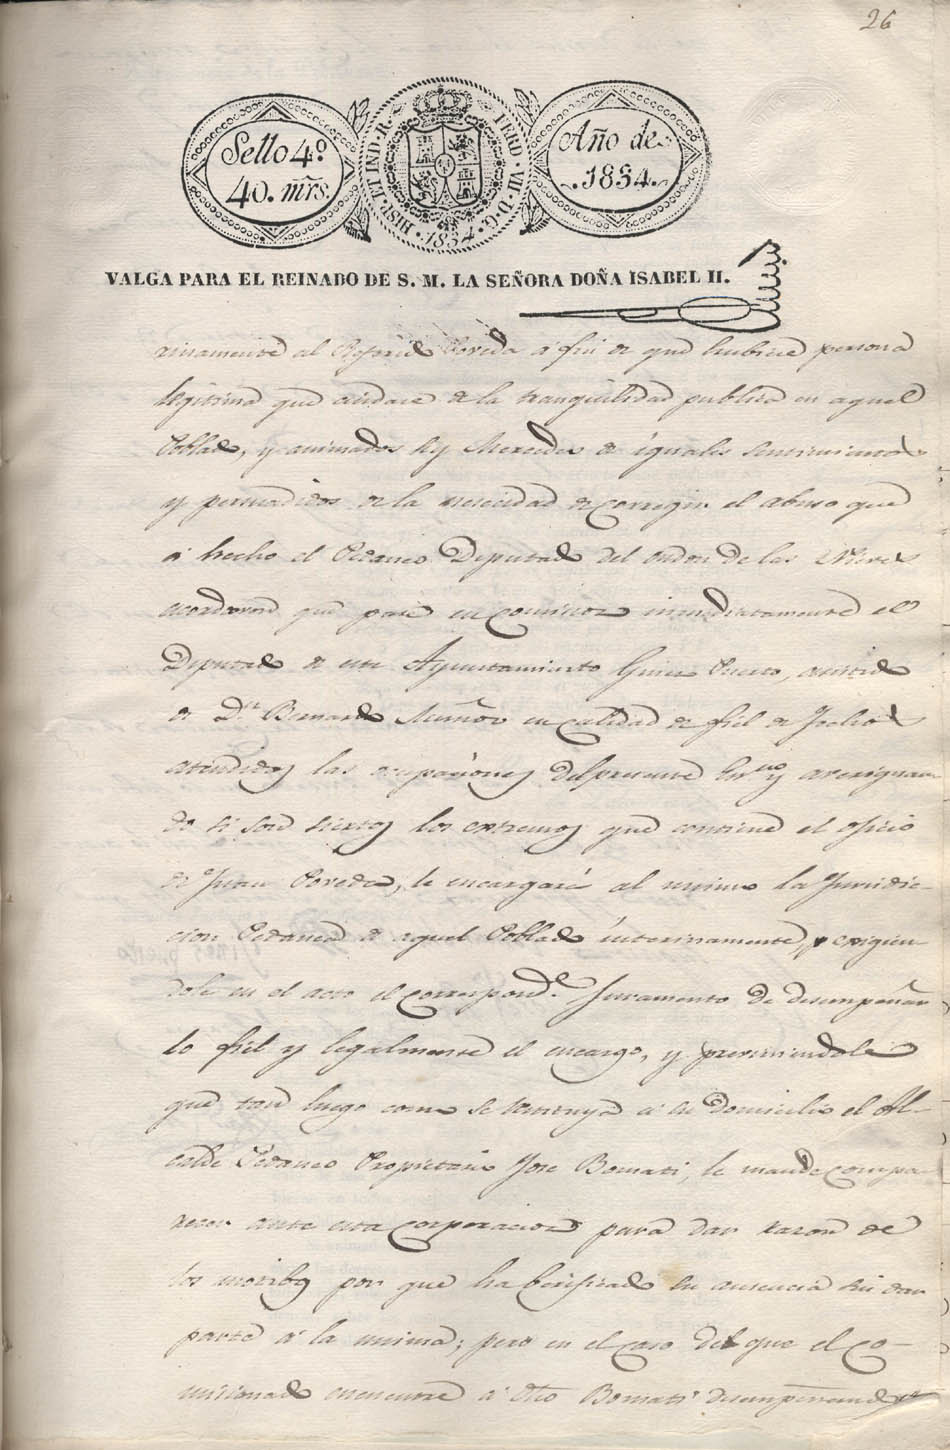 26
Sello 4º
40. mrs.
HISP. ET IND. R. FERD. VII. D. G. 1834.
Año de
1834.
VALGA PARA EL REINADO DE S. M. LA SEÑORA DOÑA ISABEL II.
rinamente al Poveda á fin de que hubiese persona
legitima que cuidase de la tranquilidad publica en aquel
Poblado, y animados sus Mercedes de iguales sentimientos
y persuadidos de la nesecidad de corregir el abuso que
á hecho el Pedaneo Diputado del ondon de las Nieves
acordaron que pase en comicion inmediatamente el
Diputado de este Ayuntamiento Gines Puerto, asistido
de Dn. Bernardo Muñoz en calidad de fiel de Fechos
atendidas las ocupaciones del presente Essno y averiguan
do si son siertos los extremos que contiene el oficio
de Juan Poveda, le encargará al mismo la Juridic-
cion Pedanea de aquel Poblado interinamente, y exigien
dole en el acto el correspond.e Juramento de desempeñar
lo fiel y legalmente el encargo, y previniendole
que tan luego como se restituya á su Domicilio el Al-
calde Pedaneo Propietario Jose Bomati, le mande compa
recer ante esta corporacion para dar razon de
los motibos por que ha berificado su ausencia sin dar
parte á la misma; pero en el caso del que el Co-
misionado encuentre á dho Bomati desempeñando